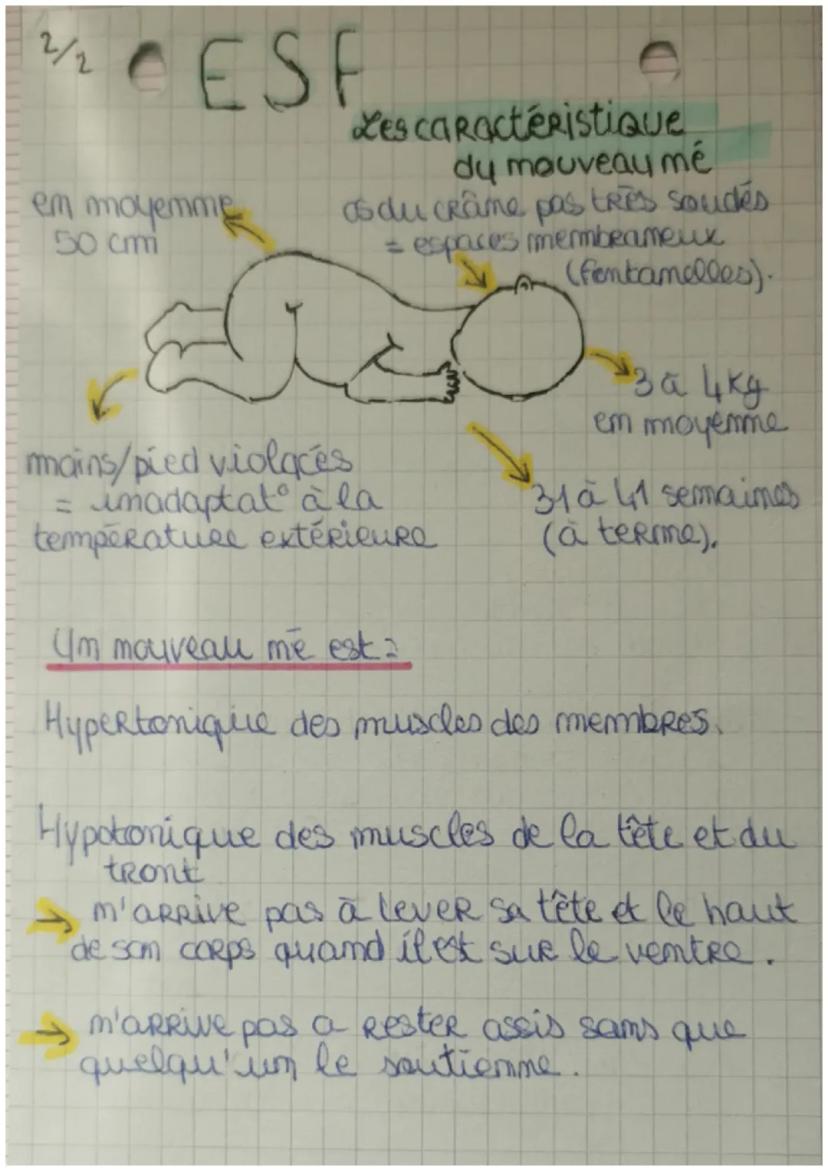 2/2
ESF
Les caractéristique
du nouveau né
en moyenne
50 cm
os du crâne pas très soudés
= espaces membraneux
(fontanelles).
3 à 4 kg
en moyenne
mains/pied violacés
= inadaptat° à la
température extérieure
31 à 41 semaines
(à terme).
Un nouveau né est :
Hypertonique des muscles des membres.
Hypotonique des muscles de la tête et du
tront
→ n'arrive pas à lever sa tête et le haut
de son corps quand il est sur le ventre.
→ n'arrive pas a rester assis sans que
quelqu'un le soutienne.